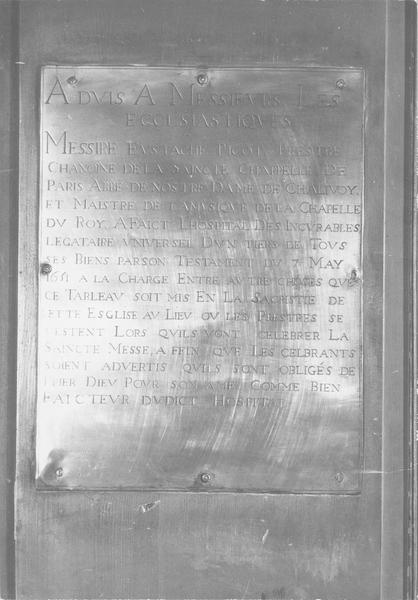 ADVIS A MESSIEVRS LES
ECCLESIASTIQVES
MESSIRE EVSTACHE PICOT PRESTRE
CHANOINE DE LA SAINCTE CHAPPELLE DE
PARIS ABBÉ DE NOSTRE DAME DE CHALIVOY,
ET MAISTRE DE LA MVSIQVE DE LA CHAPELLE
DV ROY, A FAICT LHOSPITAL DES INCVRABLES
LEGATAIRE VNIVERSEL DVN TIERS DE TOVS
SES BIENS PAR SON TESTAMENT DV 7 MAY
1651 A LA CHARGE ENTRE AVTRE CHOSES QVE
CE TABLEAV SOIT MIS EN LA SACRISTIE DE
CETTE ESGLISE AV LIEV OV LES PRESTRES SE
VESTENT LORS QVILS VONT CELEBRER LA
SAINCTE MESSE, A FEIN QVE LES CELBRANTS
SOIENT ADVERTIS QVILS SONT OBLIGÉS DE
PRIER DIEV POVR SON AME COMME BIEN
FAICTEVR DVDICT HOSPITAL